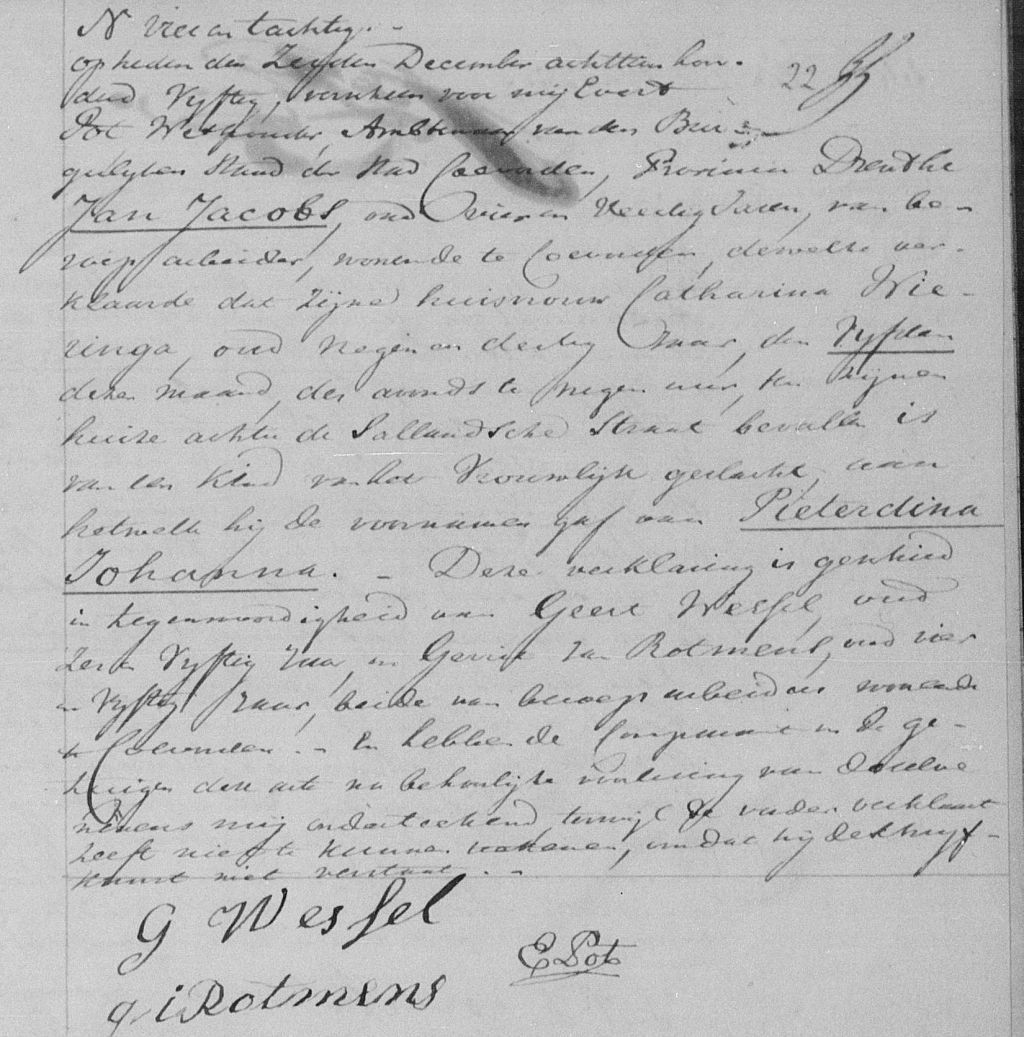 N Vier en tachtig. -
op heden den Zesden December achttien hon-
derd Vyftig, verscheen voor mij Evert
22
Pot Wethouder, Ambtenaar van den Bur-
gerlyken Stand der Stad Coevorden, Provincie Drenthe
Jan Jacobs, oud Vier en Veertig Jaren, van be-
roep arbeider, wonende te Coevorden, dewelke ver-
klaarde dat zijne huisvrouw Catharina Wie-
ringa, oud negen en dertig Jaar, den Vyfden
dezer maand, des avonds te negen uur, ten zijnen
huize achter de Sallandsche Straat bevallen is
van een Kind van het Vrouwlijk geslacht, aan
hetwelk hij de voornamen gaf van Pieterdina
Johanna. - Deze verklaring is geschied
in tegenwoordigheid van Geert Wessel, oud
Zes en Vyftig Jaar, en Gerrit Jan Rotmens, oud vier
en Vyftig Jaar, beide van beroep arbeiders wonende
te Coevorden. - En hebben de Comparant en de ge-
tuigen deze acte na behoorlijke voorlezing van dezelve
nevens mij onderteekend, terwijl de vader verklaart
heeft niet te kunnen teekenen, omdat hij de schryf-
kunst niet verstaat. -
G Wessel
E Pot
g i Rotmens